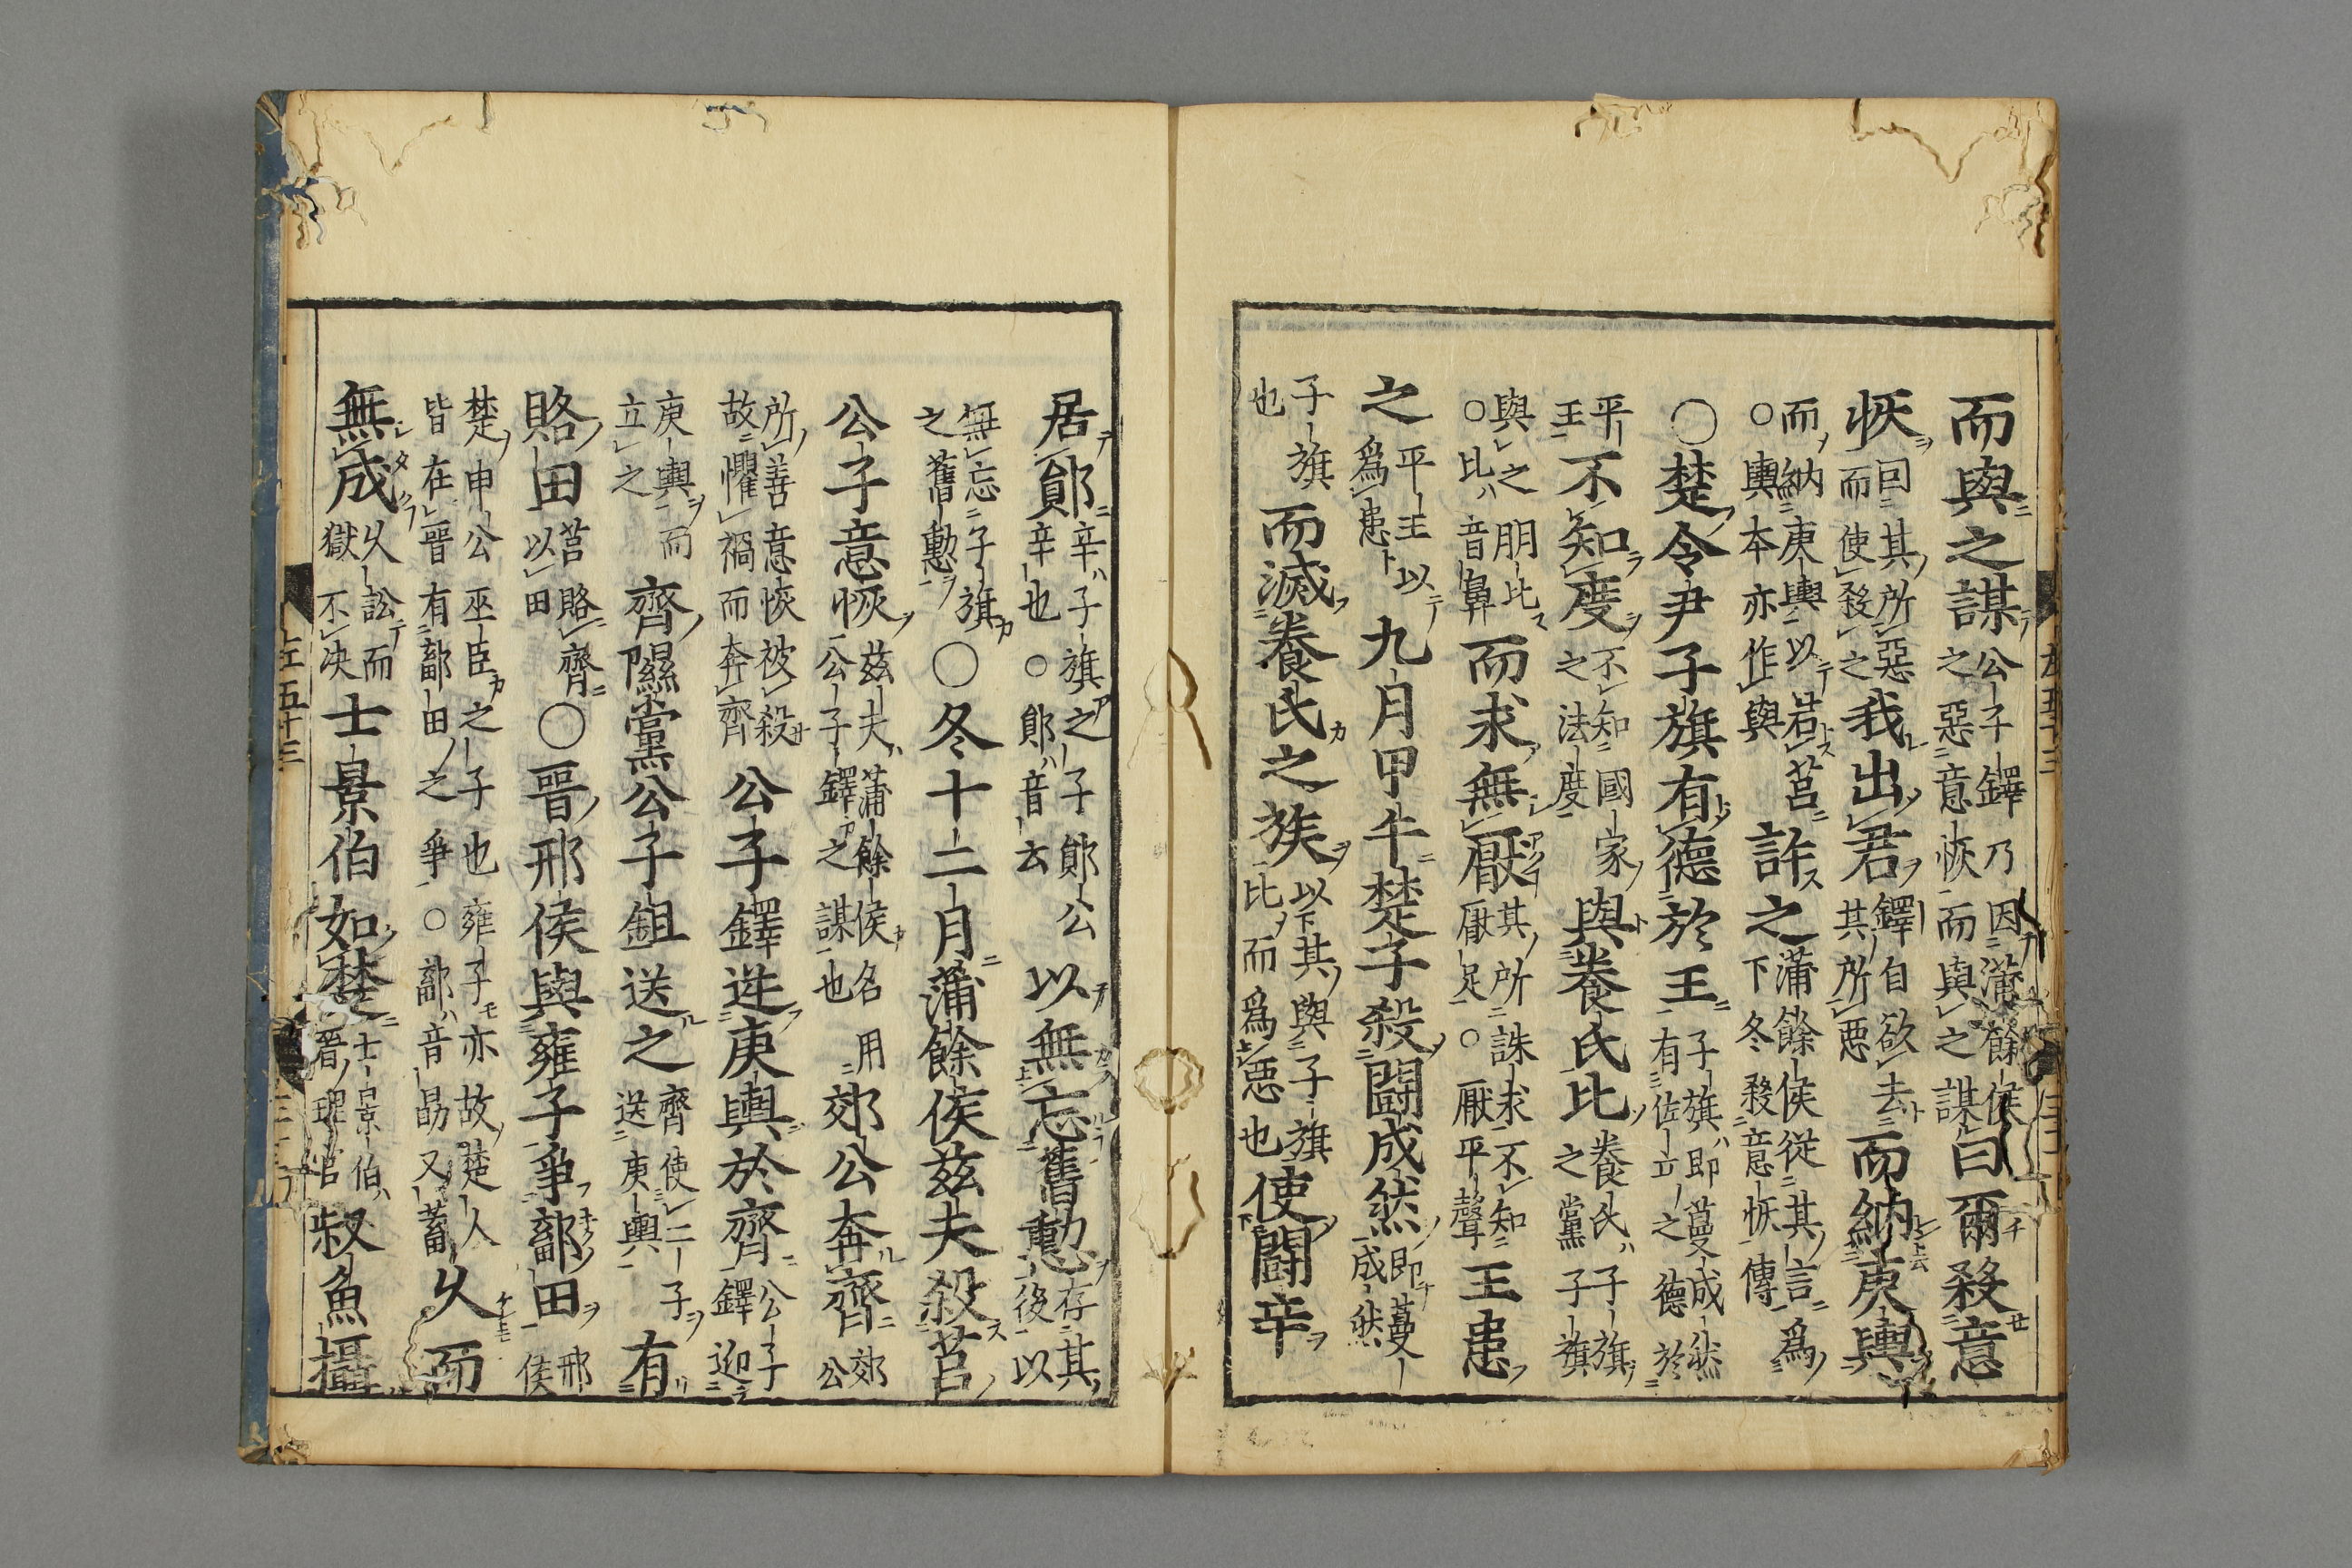 而與之謀公子鐸乃因蒲餘侯之惡意恢而與之謀曰爾殺意
恢曰其所惡而使殺之我出君鐸自欲去其所惡而納庚輿
而納庚輿以君莒○輿本亦作與許之蒲餘侯從其言爲下冬殺意恢傳
○楚令尹子旗有德於王子旗即蔓成然有佐立之德於
平王不知度不知國家之法度與養氏比養氏子旗之黨子旗
與之朋比○比音鼻而求無厭其所誅求不知厭足○厭平聲王患
之平王以爲患九月甲午楚子殺鬭成然即蔓成然
子旗也而滅養氏之族以其與子旗比而爲惡也使鬭辛
居鄖辛子旗之子鄖公辛也○鄖音云以無忘舊勳存其後以
無忘子旗之舊勳○冬十二月蒲餘侯茲夫殺莒
公子意恢茲夫蒲餘侯名用公子鐸之謀也郊公奔齊郊公
所善意恢被殺故懼禍而奔齊公子鐸逆庚輿於齊公子鐸迎
庚輿而立之齊隰黨公子鉏送之齊使二子送庚輿有
賂田莒賂齊以田○晉邢侯與雍子爭鄐田邢侯
楚申公巫臣之子也雍子亦故楚人皆在晉有鄐田之爭○鄐音勗又蓄久而
無成久訟而獄不决士景伯如楚士景伯晉理官叔魚攝